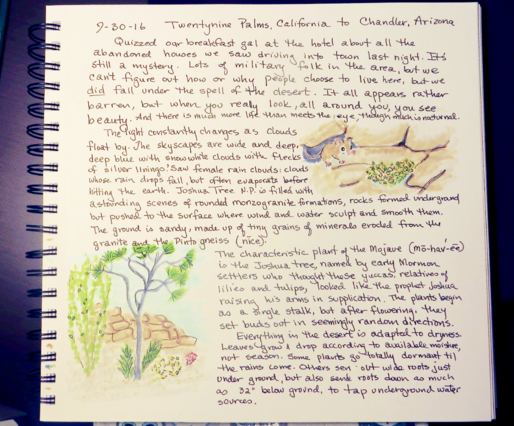 9-30-16 Twentynine Palms, California to Chandler, Arizona
Quizzed our breakfast gal at the hotel about all the
abandoned houses we saw driving into town last night. It's
still a mystery. Lots of military folk in the area, but we
can't figure out how or why people choose to live here, but we
did fall under the spell of the desert. It all appears rather
barren, but when you really look, all around you, you see
beauty. And there is much more life than meets the eye, though much is nocturnal.
The light constantly changes as clouds
float by. The skyscapes are wide and deep,
deep blue with snow white clouds with flecks
of silver linings! Saw female rain clouds: clouds
whose rain drops fall, but often evaporates before
hitting the earth. Joshua Tree N.P. is filled with
astounding scenes of rounded monzogranite formations, rocks formed underground
but pushed to the surface where wind and water sculpt and smooth them.
The ground is sandy, made up of tiny grains of minerals eroded from the
granite and the Pinto gneiss (nice).
The characteristic plant of the Mojave (mō-hav'-ēē)
is the Joshua tree, named by early Mormon
settlers who thought these yuccas, relatives of
lilies and tulips, looked like the prophet Joshua
raising his arms in supplication. The plants begin
as a single stalk, but after flowering, they
set buds out in seemingly random directions.
Everything in the desert is adapted to dryness.
Leaves grow & drop according to available moisture,
not season. Some plants go totally dormant til
the rains come. Others sen out wide roots just
under ground, but also send roots down as much
as 32" below ground, to tap underground water
sources.